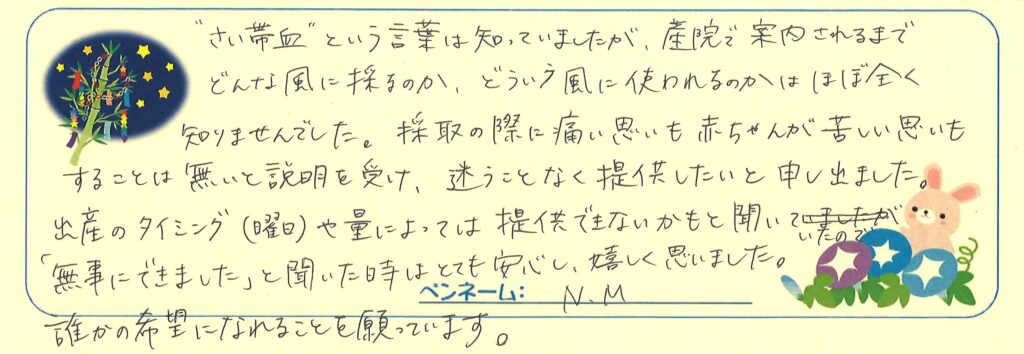 "さい帯血"という言葉は知っていましたが、産院で案内されるまで
どんな風に採るのか、どういう風に使われるのかはほぼ全く
知りませんでした。採取の際に痛い思いも赤ちゃんが苦しい思いも
することは無いと説明を受け、迷うことなく提供したいと申し出ました。
出産のタイミング(曜日)や量によっては提供できないかもと聞いていましたが
いたので
「無事にできました」と聞いた時はとても安心し、嬉しく思いました。
ペンネーム: N.M
誰かの希望になれることを願っています。